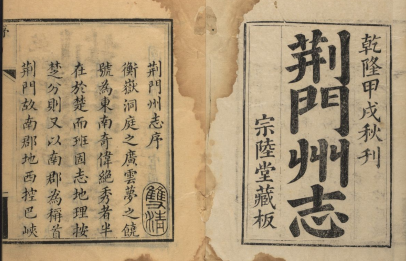 乾隆甲戌秋刊
荆門州志
宗陸堂藏板
荆門州志序
衡嶽洞庭之廣雲夢之饒
號為東南奇偉絕秀者半
在於楚而班固志地理按
楚分則又以南郡為稱首
荆門故南郡地西控巴峽
雙清